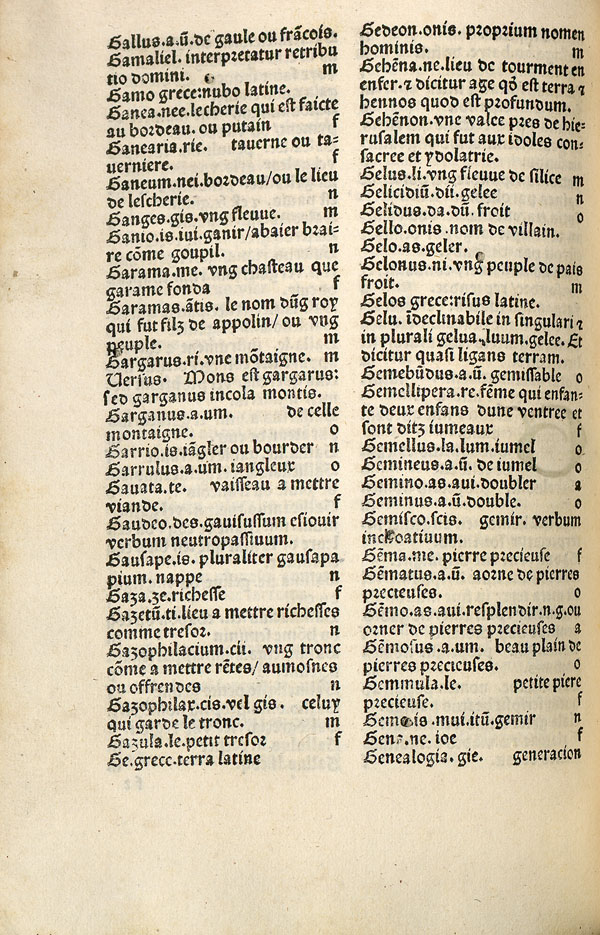 Gallus.a.ū.de gaule ou frācois.
Gamaliel. interpretatur retribu
tio domini. m
Gamo grece:nubo latine.
Ganea.nee.lecherie qui est faicte
au bordeau. ou putain f
Ganearia.rie. tauerne ou ta-
uerniere. f
Ganeum.nei.bordeau/ou le lieu
de lescherie. n
Ganges.gis.vng fleuue. m
Ganio.is.iui.ganir/abaier brai-
re cōme goupil. n
Garama.me. vng chasteau que
garame fonda f
Garamas.ātis. le nom dūg roy
qui fut filz de appolin/ ou vng
peuple. m
Gargarus.ri.vne mōtaigne. m
Uersus. Mons est gargarus:
sed garganus incola montis.
Garganus.a.um. de celle
montaigne. o
Garrio.is.iāgler ou bourder n
Garrulus.a.um. iangleur o
Gauata.te. vaisseau a mettre
viande. f
Gaudeo.des.gauisussum esiouir
verbum neutropassiuum.
Gausape.is. pluraliter gausapa
pium. nappe n
Gaza.ze.richesse f
Gazetū.ti.lieu a mettre richesses
comme tresor. n
Gazophilacium.cii. vng tronc
cōme a mettre rētes/ aumosnes
ou offrendes n
Gazophilax.cis.vel gis. celuy
qui garde le tronc. m
Gazula.le.petit tresor f
Ge.grece.terra latine
Gedeon.onis. proprium nomen
hominis. m
Gehēna.ne.lieu de tourment en
enfer.⁊ dicitur age qd̄ est terra ⁊
hennos quod est profundum.
Gehēnon.vne valee pres de hie-
rusalem qui fut aux idoles con-
sacree et ydolatrie.
Gelus.li.vng fleuue de silice m
Gelicidiū.dii.gelee n
Gelidus.da.dū. froit o
Gello.onis.nom de villain.
Gelo.as.geler.
Gelonus.ni.vng peuple de pais
froit. m
Gelos grece:risus latine.
Gelu. īdeclinabile in singulari ⁊
in plurali gelua.luum.gelee. Et
dicitur quasi ligans terram.
Gemebūdus.a.ū. gemissable o
Gemellipera.re.fēme qui enfan-
te deux enfans dune ventree et
sont ditz iumeaux f
Gemellus.la.lum.iumel o
Gemineus.a.ū. de iumel o
Gemino.as.aui.doubler a
Geminus.a.ū.double. o
Gemisco.scis. gemir. verbum
inchoatiuum.
Gēma.me. pierre precieuse f
Gēmatus.a.ū. aorne de pierres
precieuses. o
Gēmo.as.aui.resplendir.n.g.ou
orner de pierres precieuses a
Gēmosus.a.um. beau plain de
pierres precieuses. o
Gemmula.le. petite piere
precieuse. f
Gemo.is.mui.itū.gemir n
Gena.ne. ioe f
Genealogia. gie. generacion